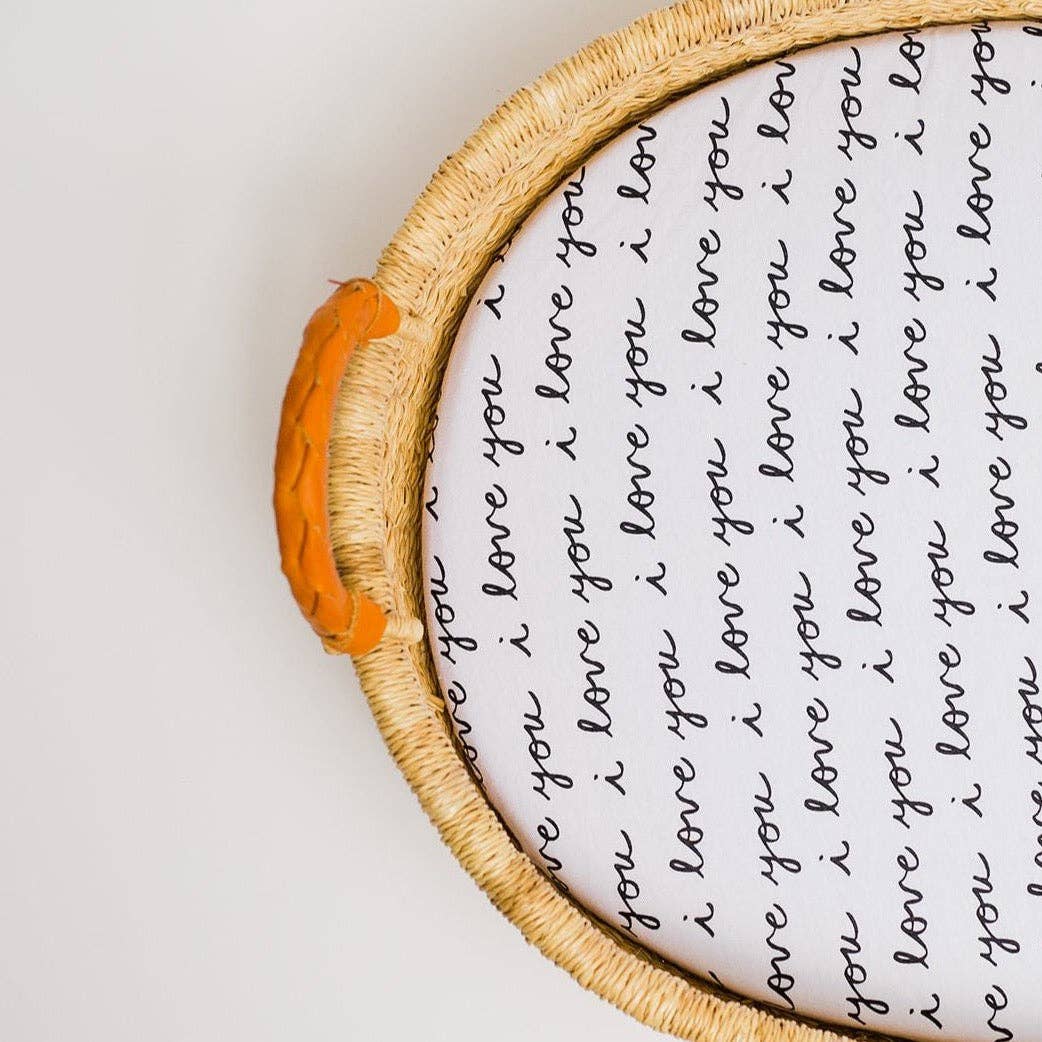 ove you i
ve you i love you i
you i love you i love you
i love you i love you i lov
ove you i love you i love you
you i love you i love you i lov
i love you i love you i love you
ve you i love you i love you i lo
love you i love you i love you